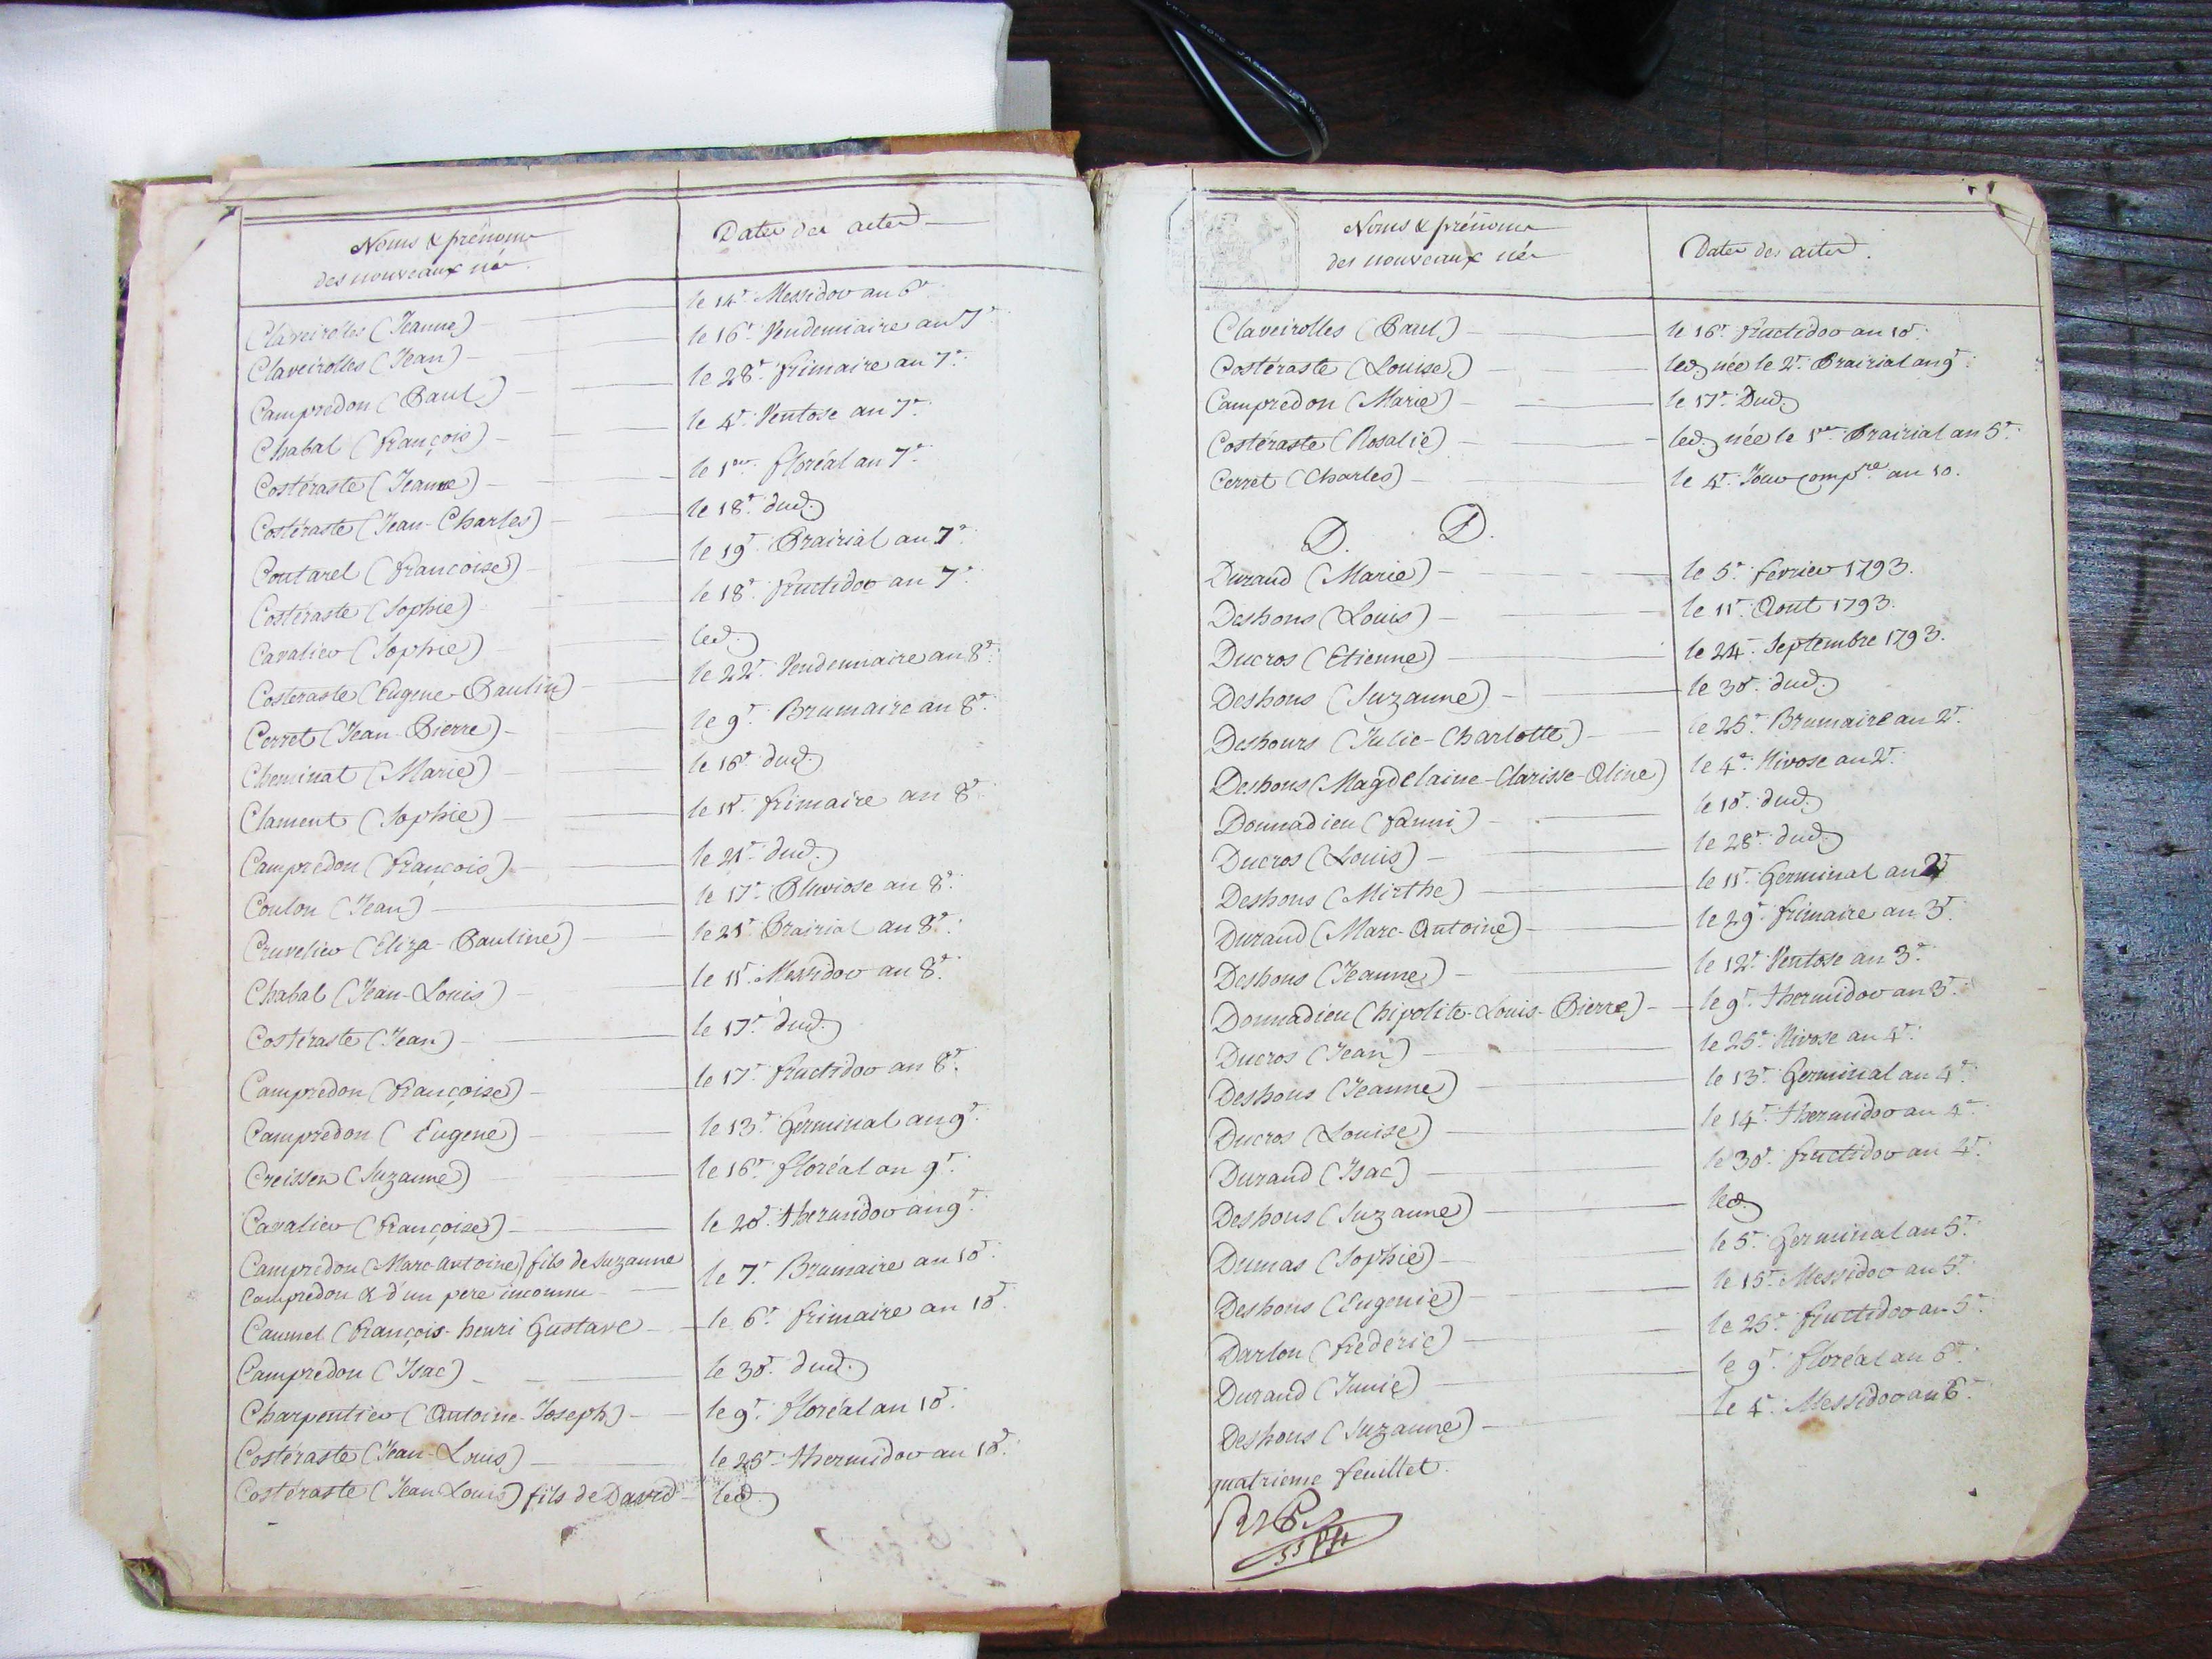 Noms & prénoms
des nouveaux nés.
Dates des actes
Claveirolles (Jeanne) le 14e Messidor an 6e
Claveirolles (Jean) le 16e Vendemiaire an 7e
Campredon (Paul) le 28e frimaire an 7e
Chabal (François) le 4e Ventose an 7e
Costéraste (Jeanne) le 1er floréal an 7e
Costéraste (Jean-Charles) le 18e dud.
Contarel (francoise) le 19e Prairial an 7e
Costéraste (Sophie) le 18e fructidor an 7e
Cavalier (Sophie) led.
Costeraste (Eugene-Paulin) le 22e Vendemiaire an 8e
Cerret (Jean-Pierre) le 9e Brumaire an 8e
Cheminat (Marie) le 16e dud.
Clament (Sophie) le 11e frimaire an 8e
Campredon (François) le 21e dud.
Coulon (Jean) le 17e Pluviose an 8e
Cruvelier (Eliza-Pauline) le 21e Prairial an 8e
Chabal (Jean-Louis) le 11e Messidor an 8e
Costéraste (Jean) le 17e dud.
Campredon (Françoise) le 17e fructidor an 8e
Campredon (Eugene) le 13e Germinal an 9e
Creissen (Suzanne) le 16e floréal an 9e
Cavalier (françoise) le 20e thermidor an 9e
Campredon (Marc antoine) fils de Suzanne
Campredon & d'un pere inconnu le 7e Brumaire an 10e
Caumel (François-henri Gustave le 6e frimaire an 10e
Campredon (Isac) le 30e dud.
Charpentier (Antoine-Joseph) le 9e floréal an 10e
Costéraste (Jean-Louis) le 25e thermidor an 10e
Costéraste (Jean Louis) fils de David led.
Noms & prénoms
des nouveaux nés
Dates des actes.
Claveirolles (Paul) le 16e fructidor an 10e
Costéraste (Louise) led. née le 2e Prairial an 9e
Campredon (Marie) le 17e Dud.
Costéraste (Rosalie) led. née le 1er Prairial an 5e
Cerret (Charles) le 4e Jour compre an 10.
D. D.
Durand (Marie) le 5e fevrier 1793.
Deshons (Louis) le 11e Aout 1793.
Ducros (Etienne) le 24e Septembre 1793.
Deshons (Suzanne) le 30e dud.
Deshours (Julie-Charlotte) le 25e Brumaire an 2e
Deshons (Magdelaine-Clarisse-Aline) le 4e Nivose an 2e
Donnadieu (fanni) le 10e dud.
Ducros (Louis) le 28e dud.
Deshons (Mirthe) le 11e Germinal an 2e
Durand (Marc-Antoine) le 29e frimaire an 3e
Deshons (Jeanne) le 12e Ventose an 3e
Donnadieu (hipolite-Louis-Pierre) le 9e thermidor an 3e
Ducros (Jean) le 25e Nivose an 4e
Deshons (Jeanne) le 13e Germinal an 4e
Ducros (Louise) le 14e thermidor an 4e
Durand (Isac) le 30e fructidor an 4e
Deshons (Suzanne) led.
Dumas (Sophie) le 5e Germinal an 5e
Deshons (Eugenie) le 15e Messidor an 5e
Darlon (frédéric) le 25e fructidor an 5e
Durand (Junie) le 9e floréal an 6e
Deshons (Suzanne) le 4e Messidor an 6e
quatrieme feuillet.